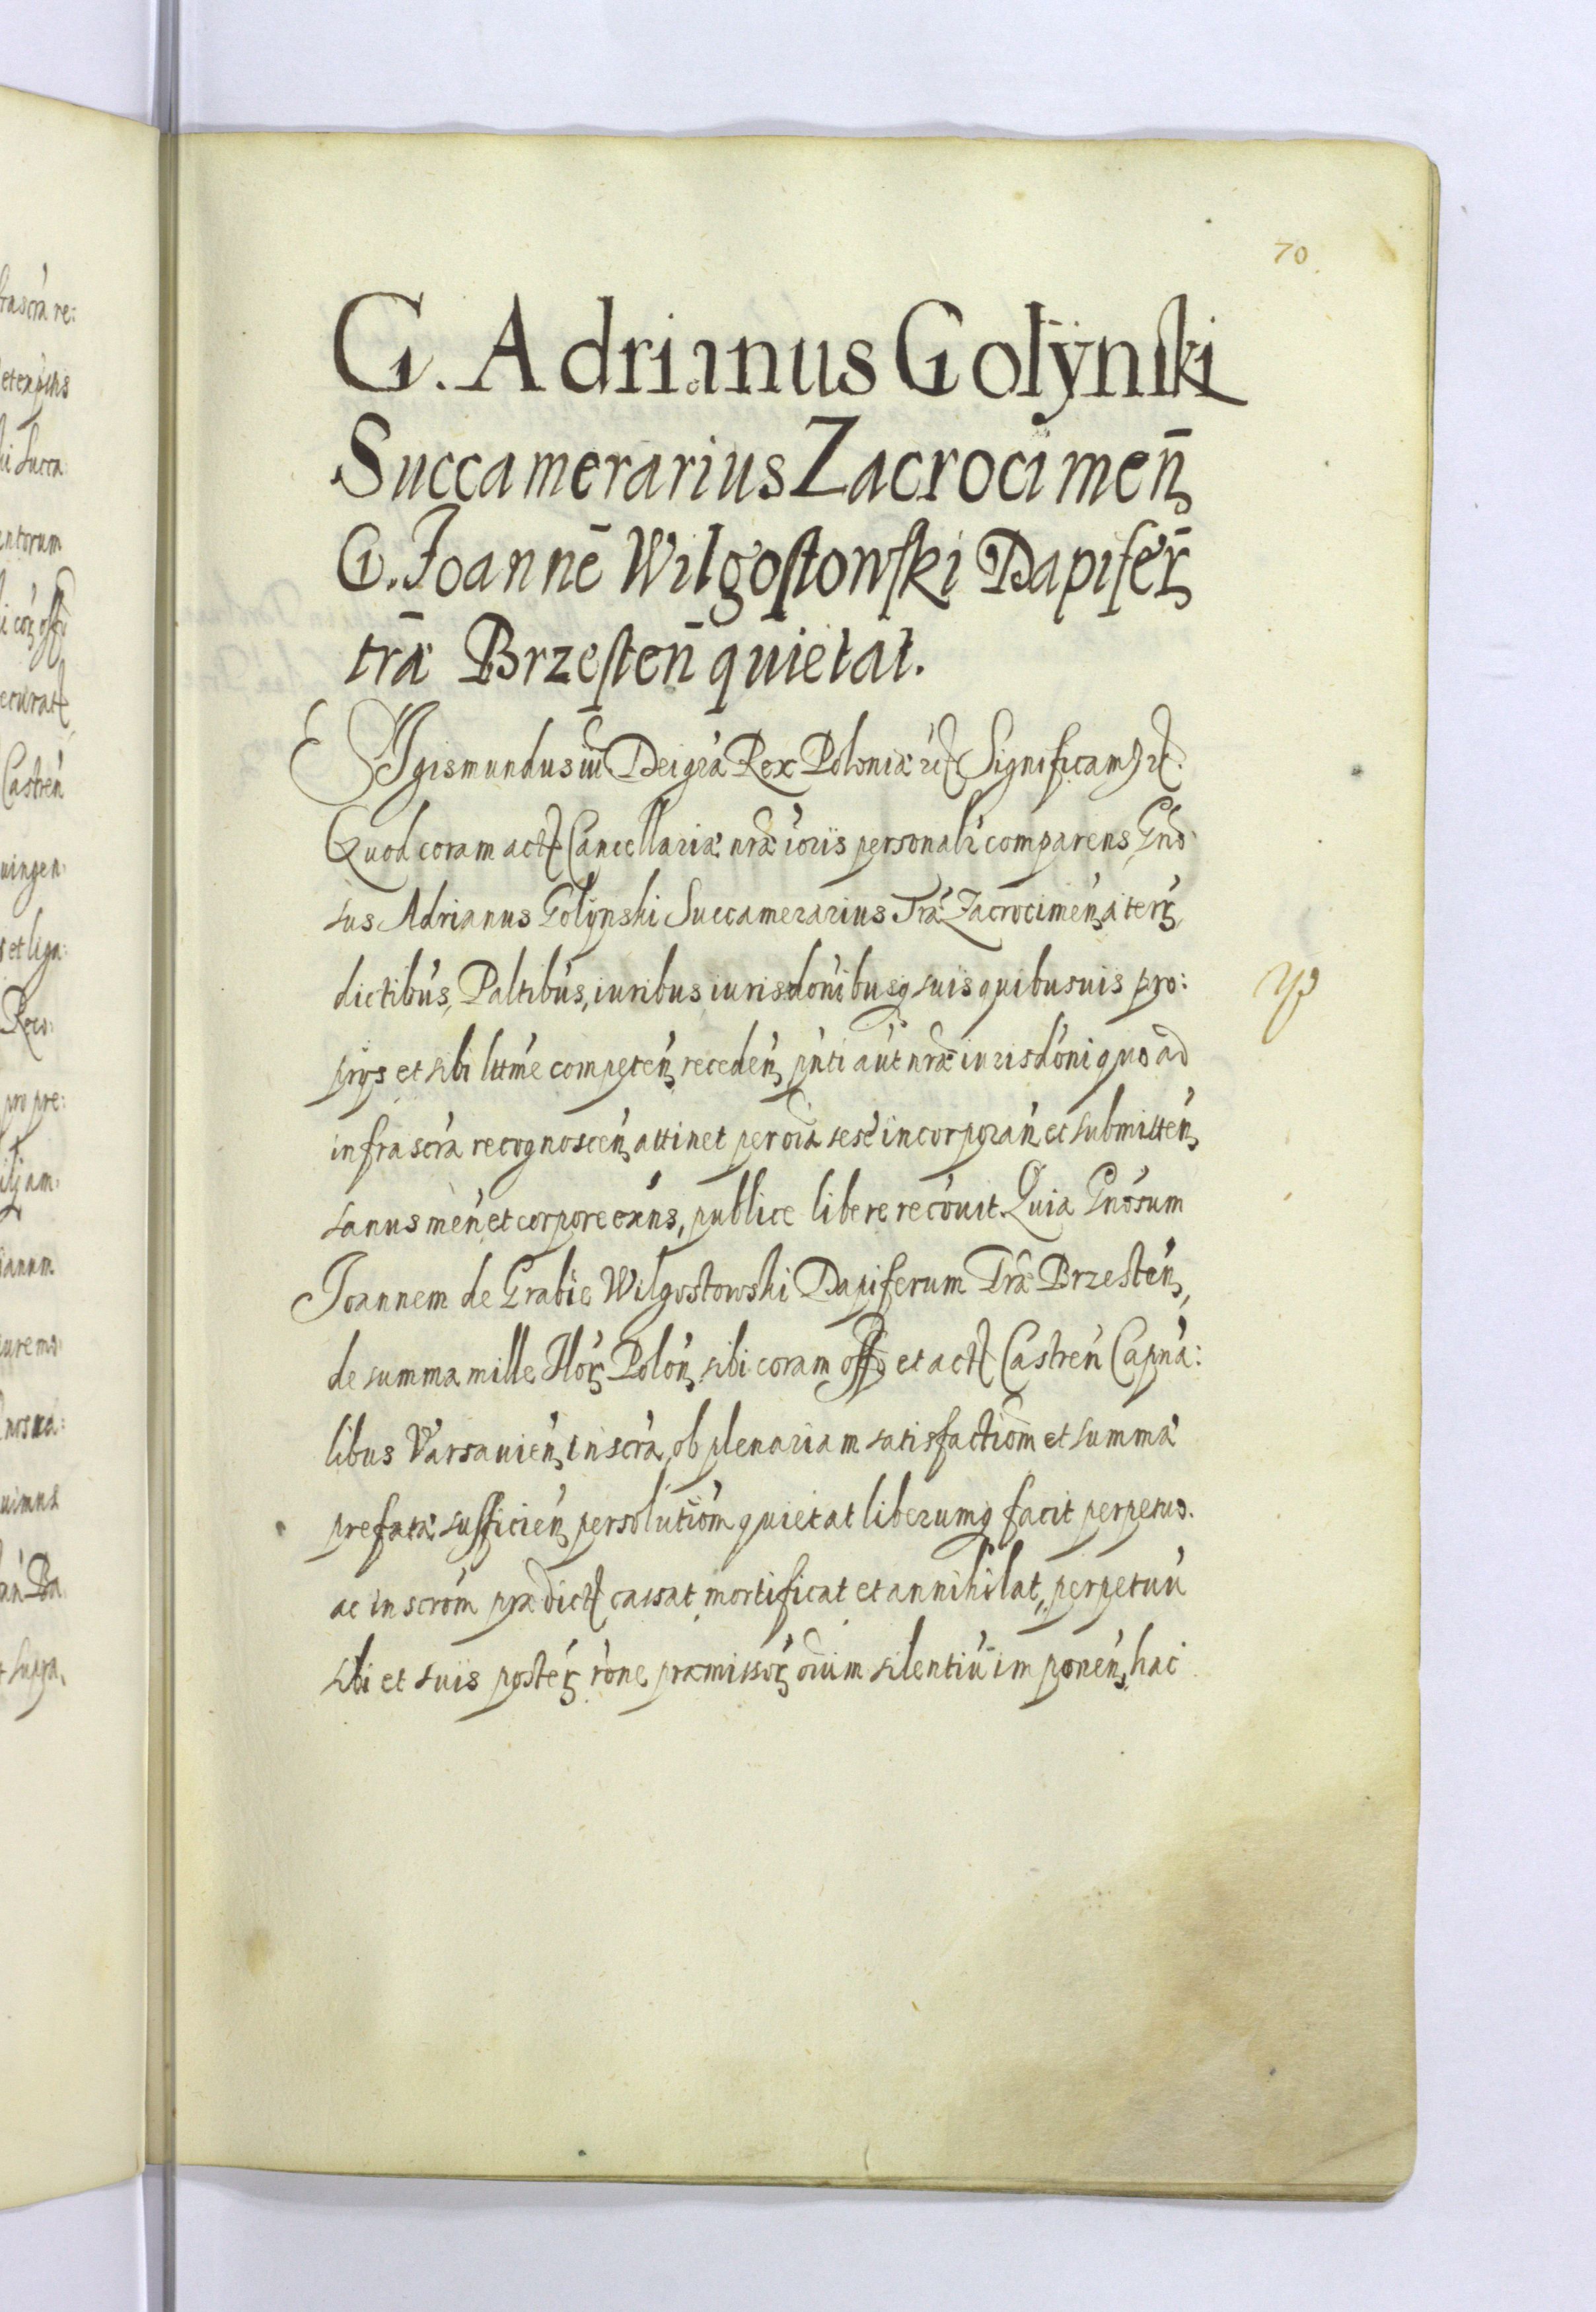 70
G. Adrianus Golÿnski
Succamerarius Zacrocimen̄
G. Joannē Wilgostowski Dapifer̄
trǣ Brzesten̄ quietat.
SIgismundus iii Dei grā Rex Poloniæ etc Significamus etc.
Quod coram actis Cancellariæ nræ ioris personalr comparens Gnō
sus Adrianus Golÿnski Succamerarius Træ Zacrocimen̄, a terr̄,
dictibus, Paltibus, iuribus iurisdōnibusq suis quibusuis pro:
prijs et sibi lttme competen̄, receden̄, pn̄ti aut nræ iurisdōni quo ad
infrascrā recognoscen̄ attinet per oīa sese incorporan̄ et submitten̄,
sanus men̄, et corpore exn̄s, publice libere recōuit. Quia Gnōsum
Joannem de Grabie Wilgostowski Dapiferum Træ Brzesten̄,
de summa mille Flor̄, Polon̄, sibi coram offo et actis Castren̄ Capna:
libus Varsauien̄, inscrā, ob plenariam satisfactiōm et summæ
prefatæ sufficien̄, persolutiōm quietat liberumq facit perpetuo.
ac inscrōm prædictis cassat, mortificat et annihilat, perpetuū
sibi et suis poster̄, rōne præmissor̄, oīum silentiū imponen̄, hac